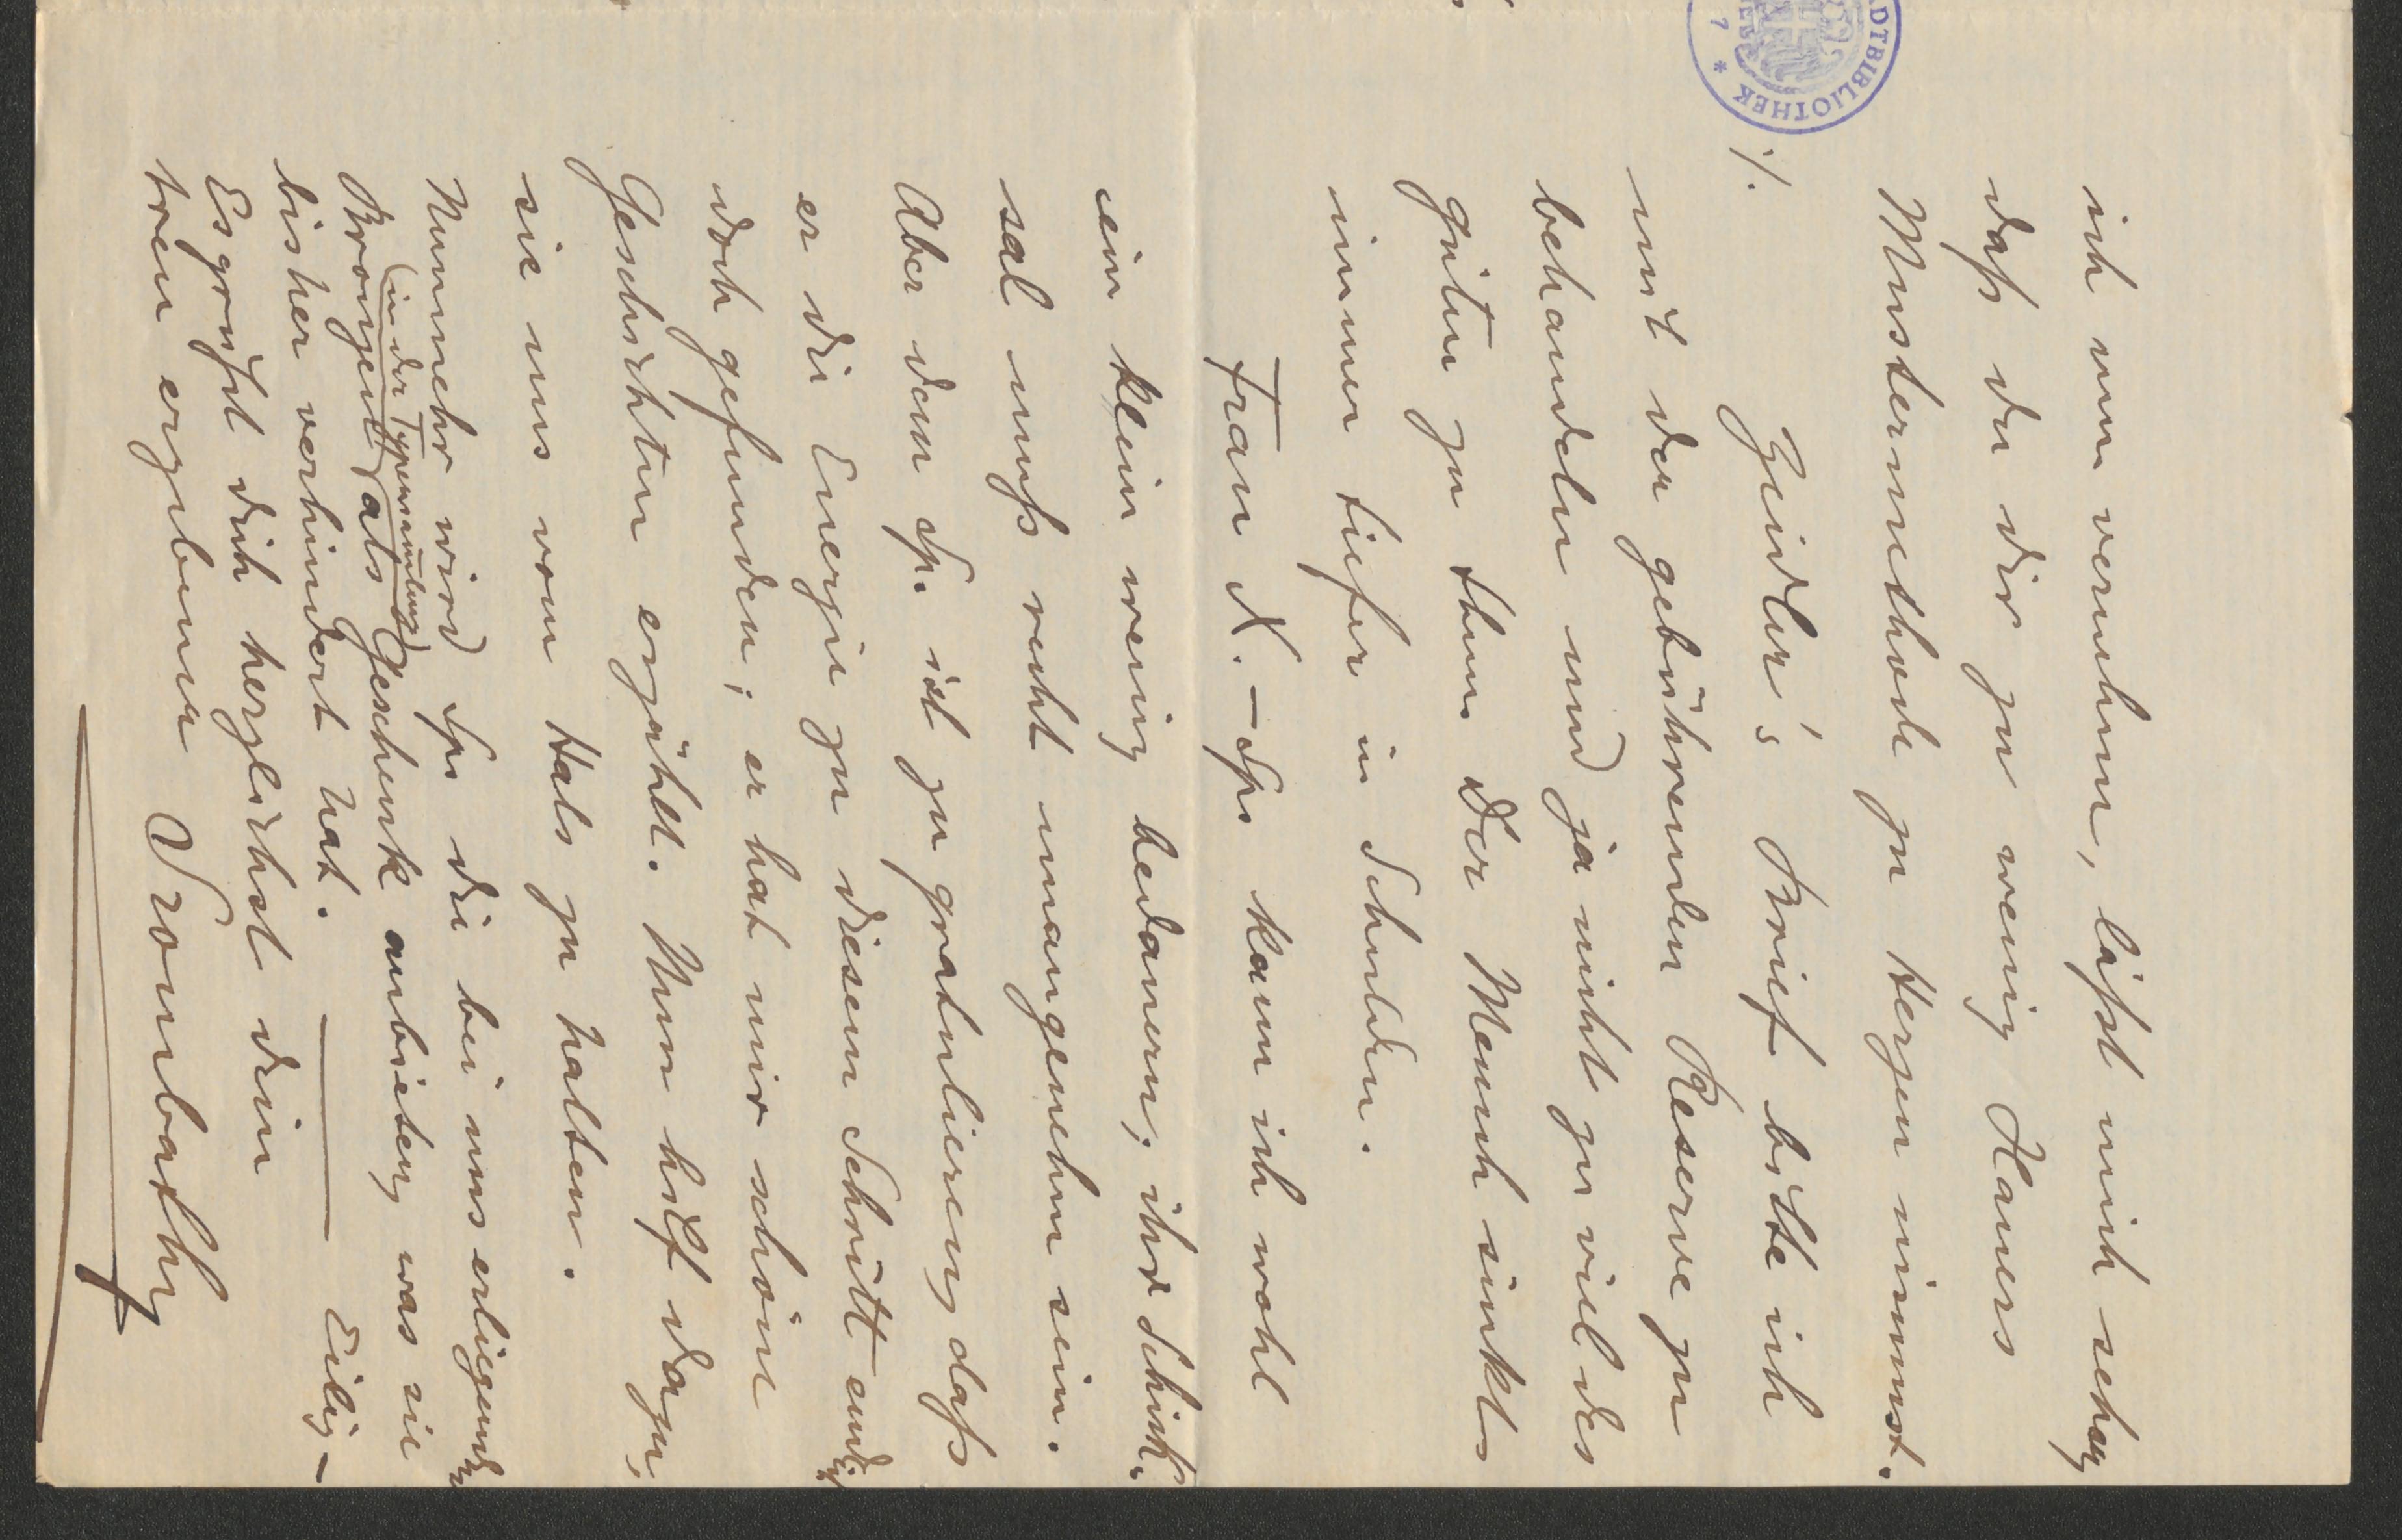 ich nun vernehme, läßt mich schon
daß du dir zu wenig Hanns
Mustermethode zu Herzen nimmst.
./. Zeidler's Brief bitte ich
mit der gebührenden Reserve zu
behandeln und ja nicht zu viel des
guten zu thun. Der Mensch sinkt
immer tiefer in Schulden.
Frau N.-Sp. kann ich wohl
ein klein wenig bedauern; ihr Schick-
sal muß recht unangenehm sein.
Aber dem Sp. ist zu gratulieren, daß
er die Energie zu diesem Schritt endlich
doch gefunden; er hat mir schöne
Geschichten erzählt. Nun hilf dazu,
sie uns vom Hals zu halten.
Nunmehr wird Sp. die bei uns erliegenden
Bronzen (in der Typensammlung) als Geschenk anbieten, was sie
bisher verhindert hat. — Eilig —
Es grüßt dich herzlichst dein
treu ergebener Szombathy
STADTBIBLIOTHEK